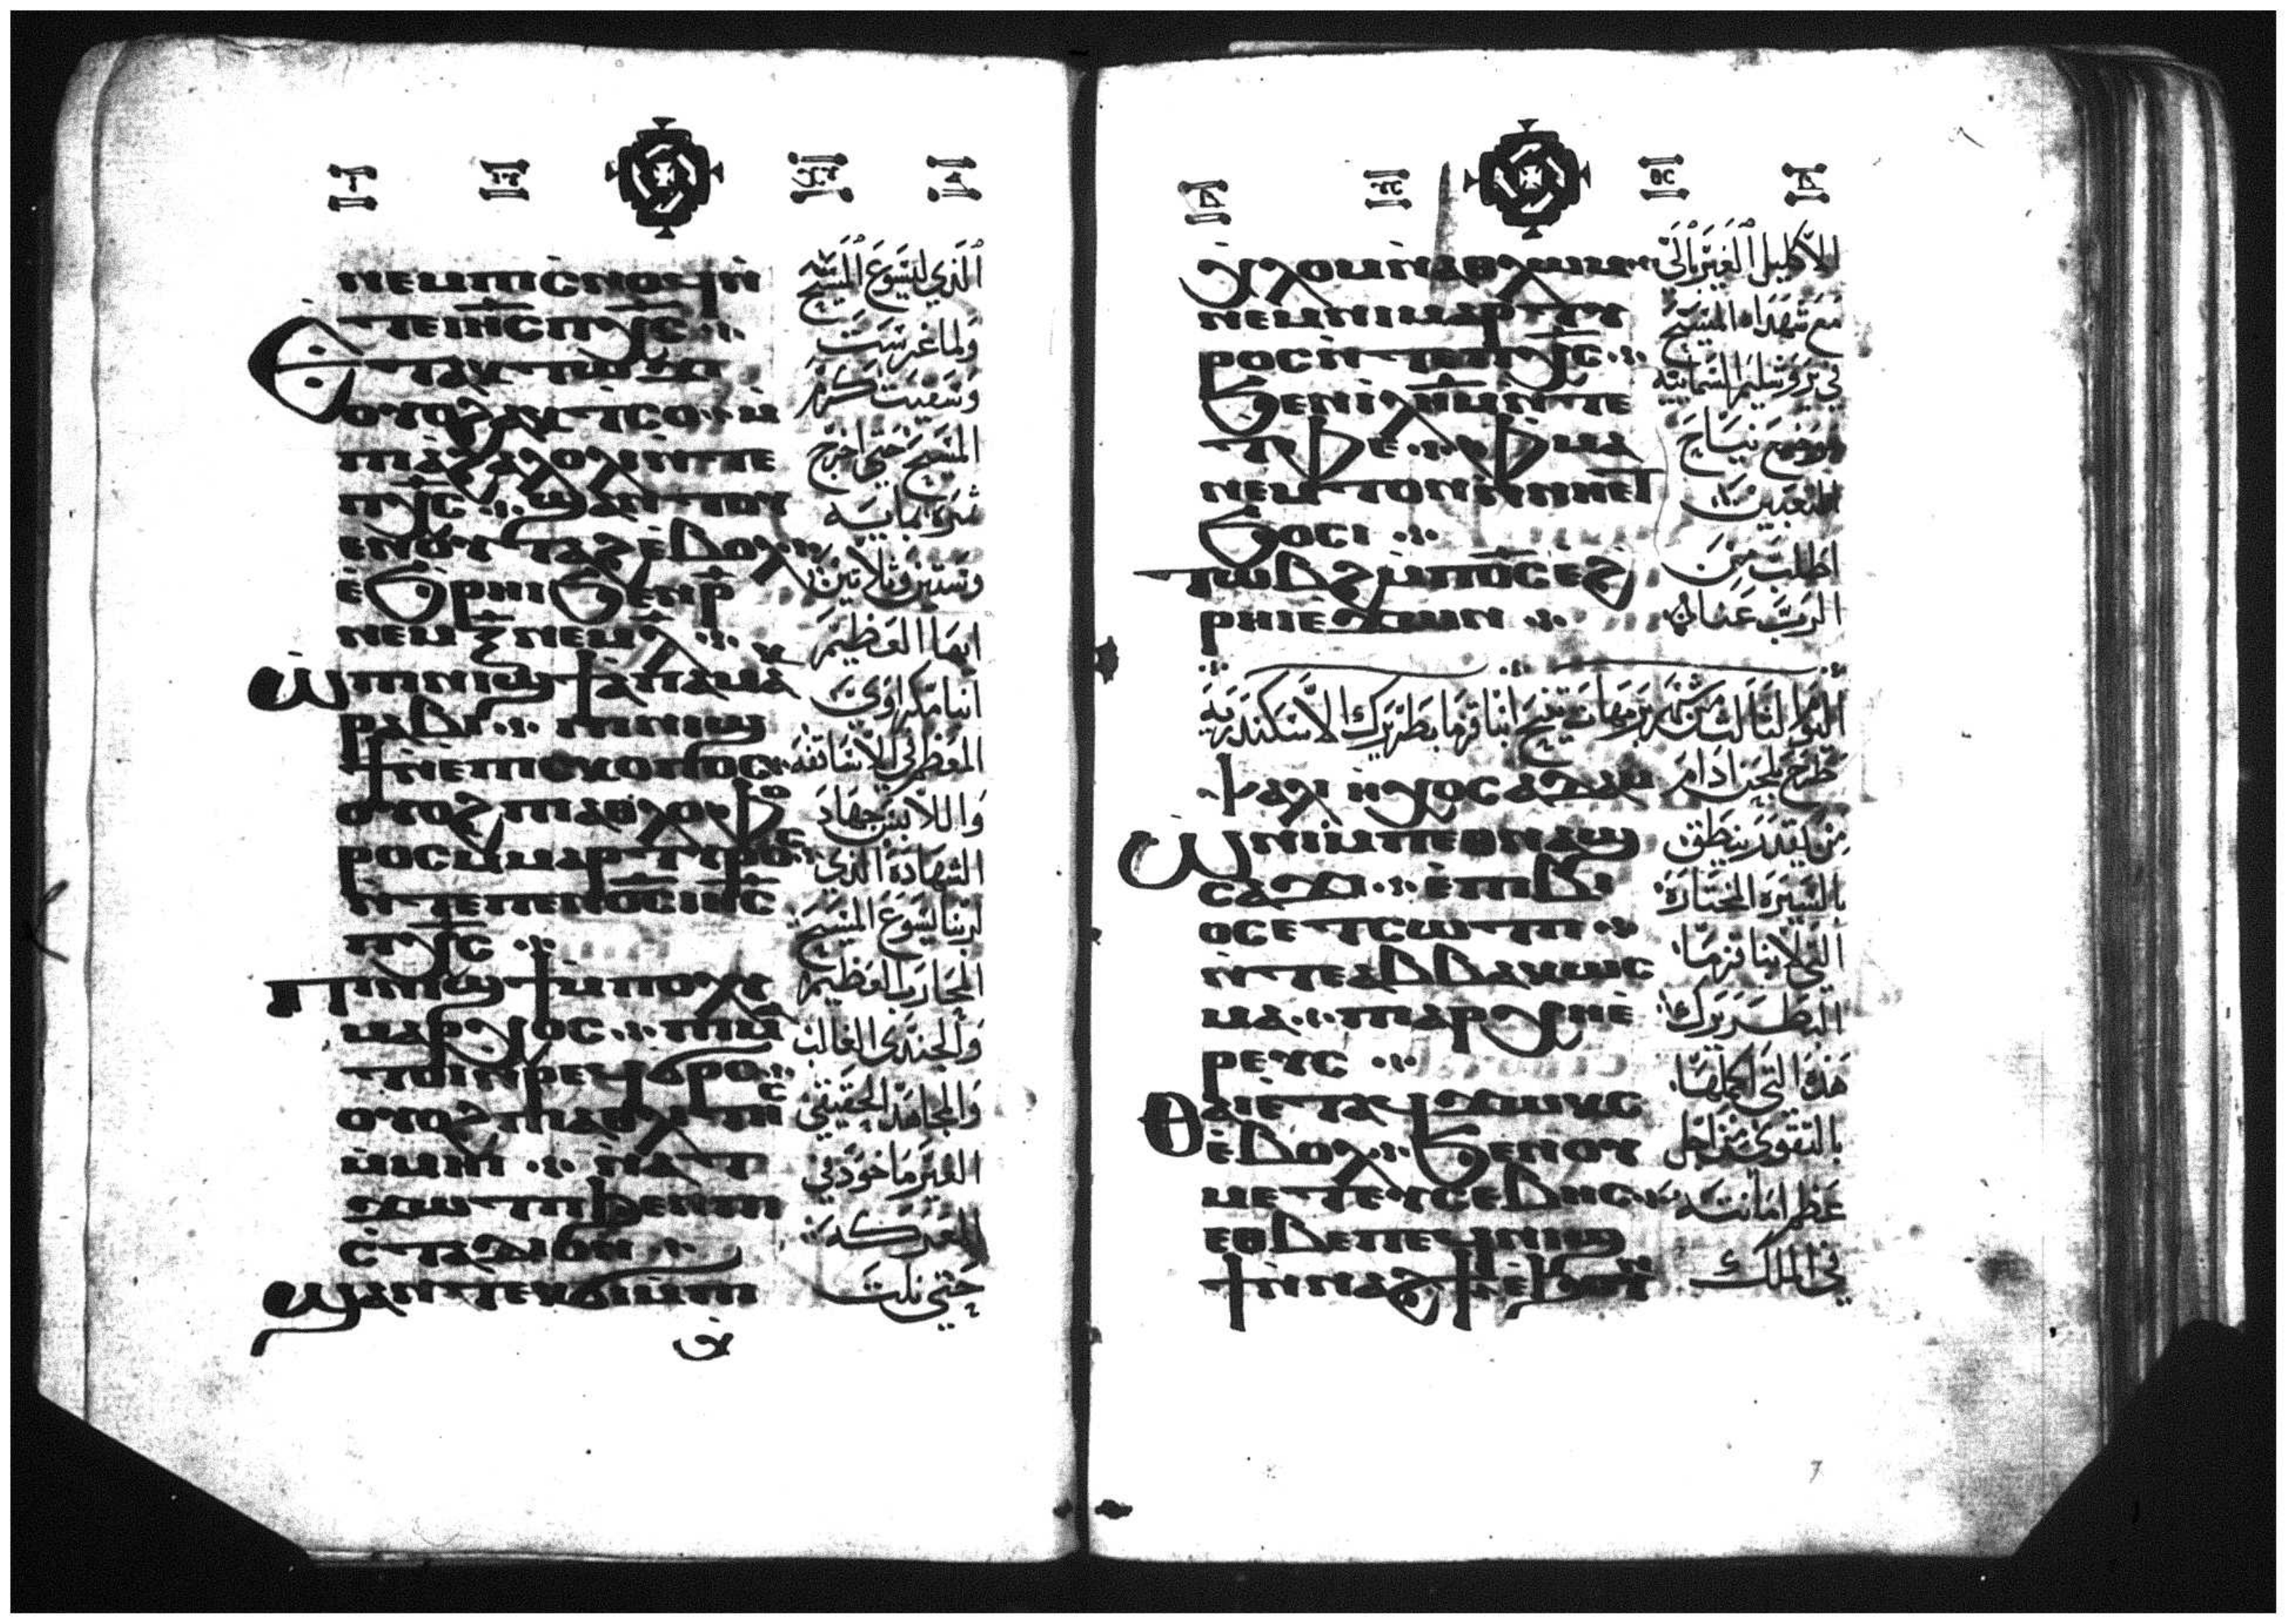 ⲛⲉⲙⲡⲓⲥⲛⲟϥⲛ̀
ⲧⲉⲓⲏ̅ⲥ̅ⲡⲭ̅ⲥ̅ ⁘
Ⲉⲧⲁⲩⲧⲱϫⲓ
ⲟⲩⲟϩⲁⲩⲧⲥⲟ ⁘ ⲙ̀
ⲡⲓⲁ̀ϩⲁⲗⲟⲗⲓⲛ̀ⲧⲉ
ⲡⲭ̅ⲥ̅ ⁘ ϣⲁⲛⲧⲟⲩ
ⲉⲛⲟⲩⲧⲁϩⲉ̀ⲃⲟⲗ ⁘
ⲉ̀ϧⲣⲏⲓϧⲉⲛⲣ̅
ⲛⲉⲙⲝ̅ⲛⲉⲙⲗ̅ ⁘
Ⲱ̀ⲡⲓⲛⲓϣϯⲁ̀ⲡⲁⲙⲁⲕ
ⲣⲁⲃⲓ ⁘ ⲡⲓⲛⲓϣ
ϯⲛⲉⲡⲓⲥⲕⲟⲡⲟⲥ ⁘
ⲟⲩⲟϩⲡⲓⲁⲑⲗⲟⲫⲟ
ⲣⲟⲥⲙ̀ⲙⲁⲣⲧⲩⲣⲟⲥ ⁘
ⲛ̀ⲧⲉⲡⲉⲛⲟ̅ⲥ̅ⲓⲏ̅ⲥ̅
ⲡⲭ̅ⲥ̅ ⁘
Ⲡⲓⲛⲓϣϯⲙ̀ⲡⲟⲗⲩ
ⲙⲁⲣⲭⲟⲥ ⁘ ⲡⲓⲙⲁ
ⲧⲟⲓⲛ̀ⲣⲉϥϭⲣⲟ ⁘
ⲟⲩⲟϩⲡⲓⲁⲑⲗⲓⲧⲏⲥ
ⲙ̀ⲙⲏⲓ ⁘ ⲛ̀ⲁⲧ
ϫⲱⲧⲡϧⲉⲛⲡⲓ
ⲥ̀ⲧⲁⲇⲓⲟⲛ ⁘
Ϣⲁⲛⲧⲉⲕϭⲓⲙ̀ⲡⲓ
الذي ليسوع المسيح
ولما غرست
وسقيت كرم
المسيح حتى اخرج
ثمره بمايه
وستين وثلاثين
ايها العظيم
انبا مكراوي
المعظم في الاساقفه
واللابس جهاد
الشهادة الذي
لربنا يسوع المسيح
المحارب العظيم
والجندي الغالب
والمجاهد الحقيقي
الغير ماخوذ في
المعركه
حتى نلت
ⲭⲗⲟⲙⲛ̀ⲁⲑⲗⲱⲙ ⁘
ⲛⲉⲙⲛⲓⲙⲁⲣⲧⲩ
ⲣⲟⲥⲛ̀ⲧⲉⲡⲭ̅ⲥ̅ ⁘
ϧⲉⲛⲓ̀ⲗ̅ⲏ̅ⲙ̅ⲛ̀ⲧⲉ
ⲧⲫⲉ ⁘ ⲫⲙⲁ
ⲛⲉⲙⲧⲟⲛⲛ̀ⲛⲏⲉⲧ
ϧⲟⲥⲓ ⁘
Ⲧⲱⲃϩⲙ̀ⲡⲟ̅ⲥ̅ⲉ̀ϩ
ⲣⲏⲓⲉ̀ϫⲱⲛ ⁘
الاكليل الغير بالى
مع شهداء المسيح
في يروشليم السمايية
موضع نياح
المتعبين
اطلب من
الرب عنا
اليوم الثالث من شهر برمهات تنيح انبا قزما بطريرك الاسكندرية
Ⲯⲁⲗⲓ ⲏ̀ⲭⲟⲥ ⲁⲇⲁⲙ طرح بلحن ادام
Ⲱ̀ⲛⲓⲙ̀ⲡⲉⲑⲛⲁϣ
ⲥⲁϫⲓ ⁘ ⲉ̀ⲡⲓⲃⲓ
ⲟⲥⲉⲧⲥⲱⲧⲡ ⁘
ⲛ̀ⲧⲉⲁⲃⲃⲁⲕⲱⲥ
ⲙⲁ ⁘ ⲡⲓⲁⲣⲭⲏⲉ̀
ⲣⲉⲩⲥ ⁘
Ⲑⲁⲓⲉ̀ⲧⲁϥϫⲱⲕⲥ
ⲉ̀ⲃⲟⲗ ⁘ ϧⲉⲛⲟⲩ
ⲙⲉⲧⲉⲩⲥⲉⲃⲏⲥ ⁘
ⲉⲑⲃⲉⲡⲉϥⲛⲓϣ
ϯⲛ̀ⲛⲁϩϯ
من يقدر ينطق
بالسيرة المختارة
التي لانبا قزما
البطريرك
هذه التي اكملها
بالتقوى من اجل
عظم امانته
في الملك